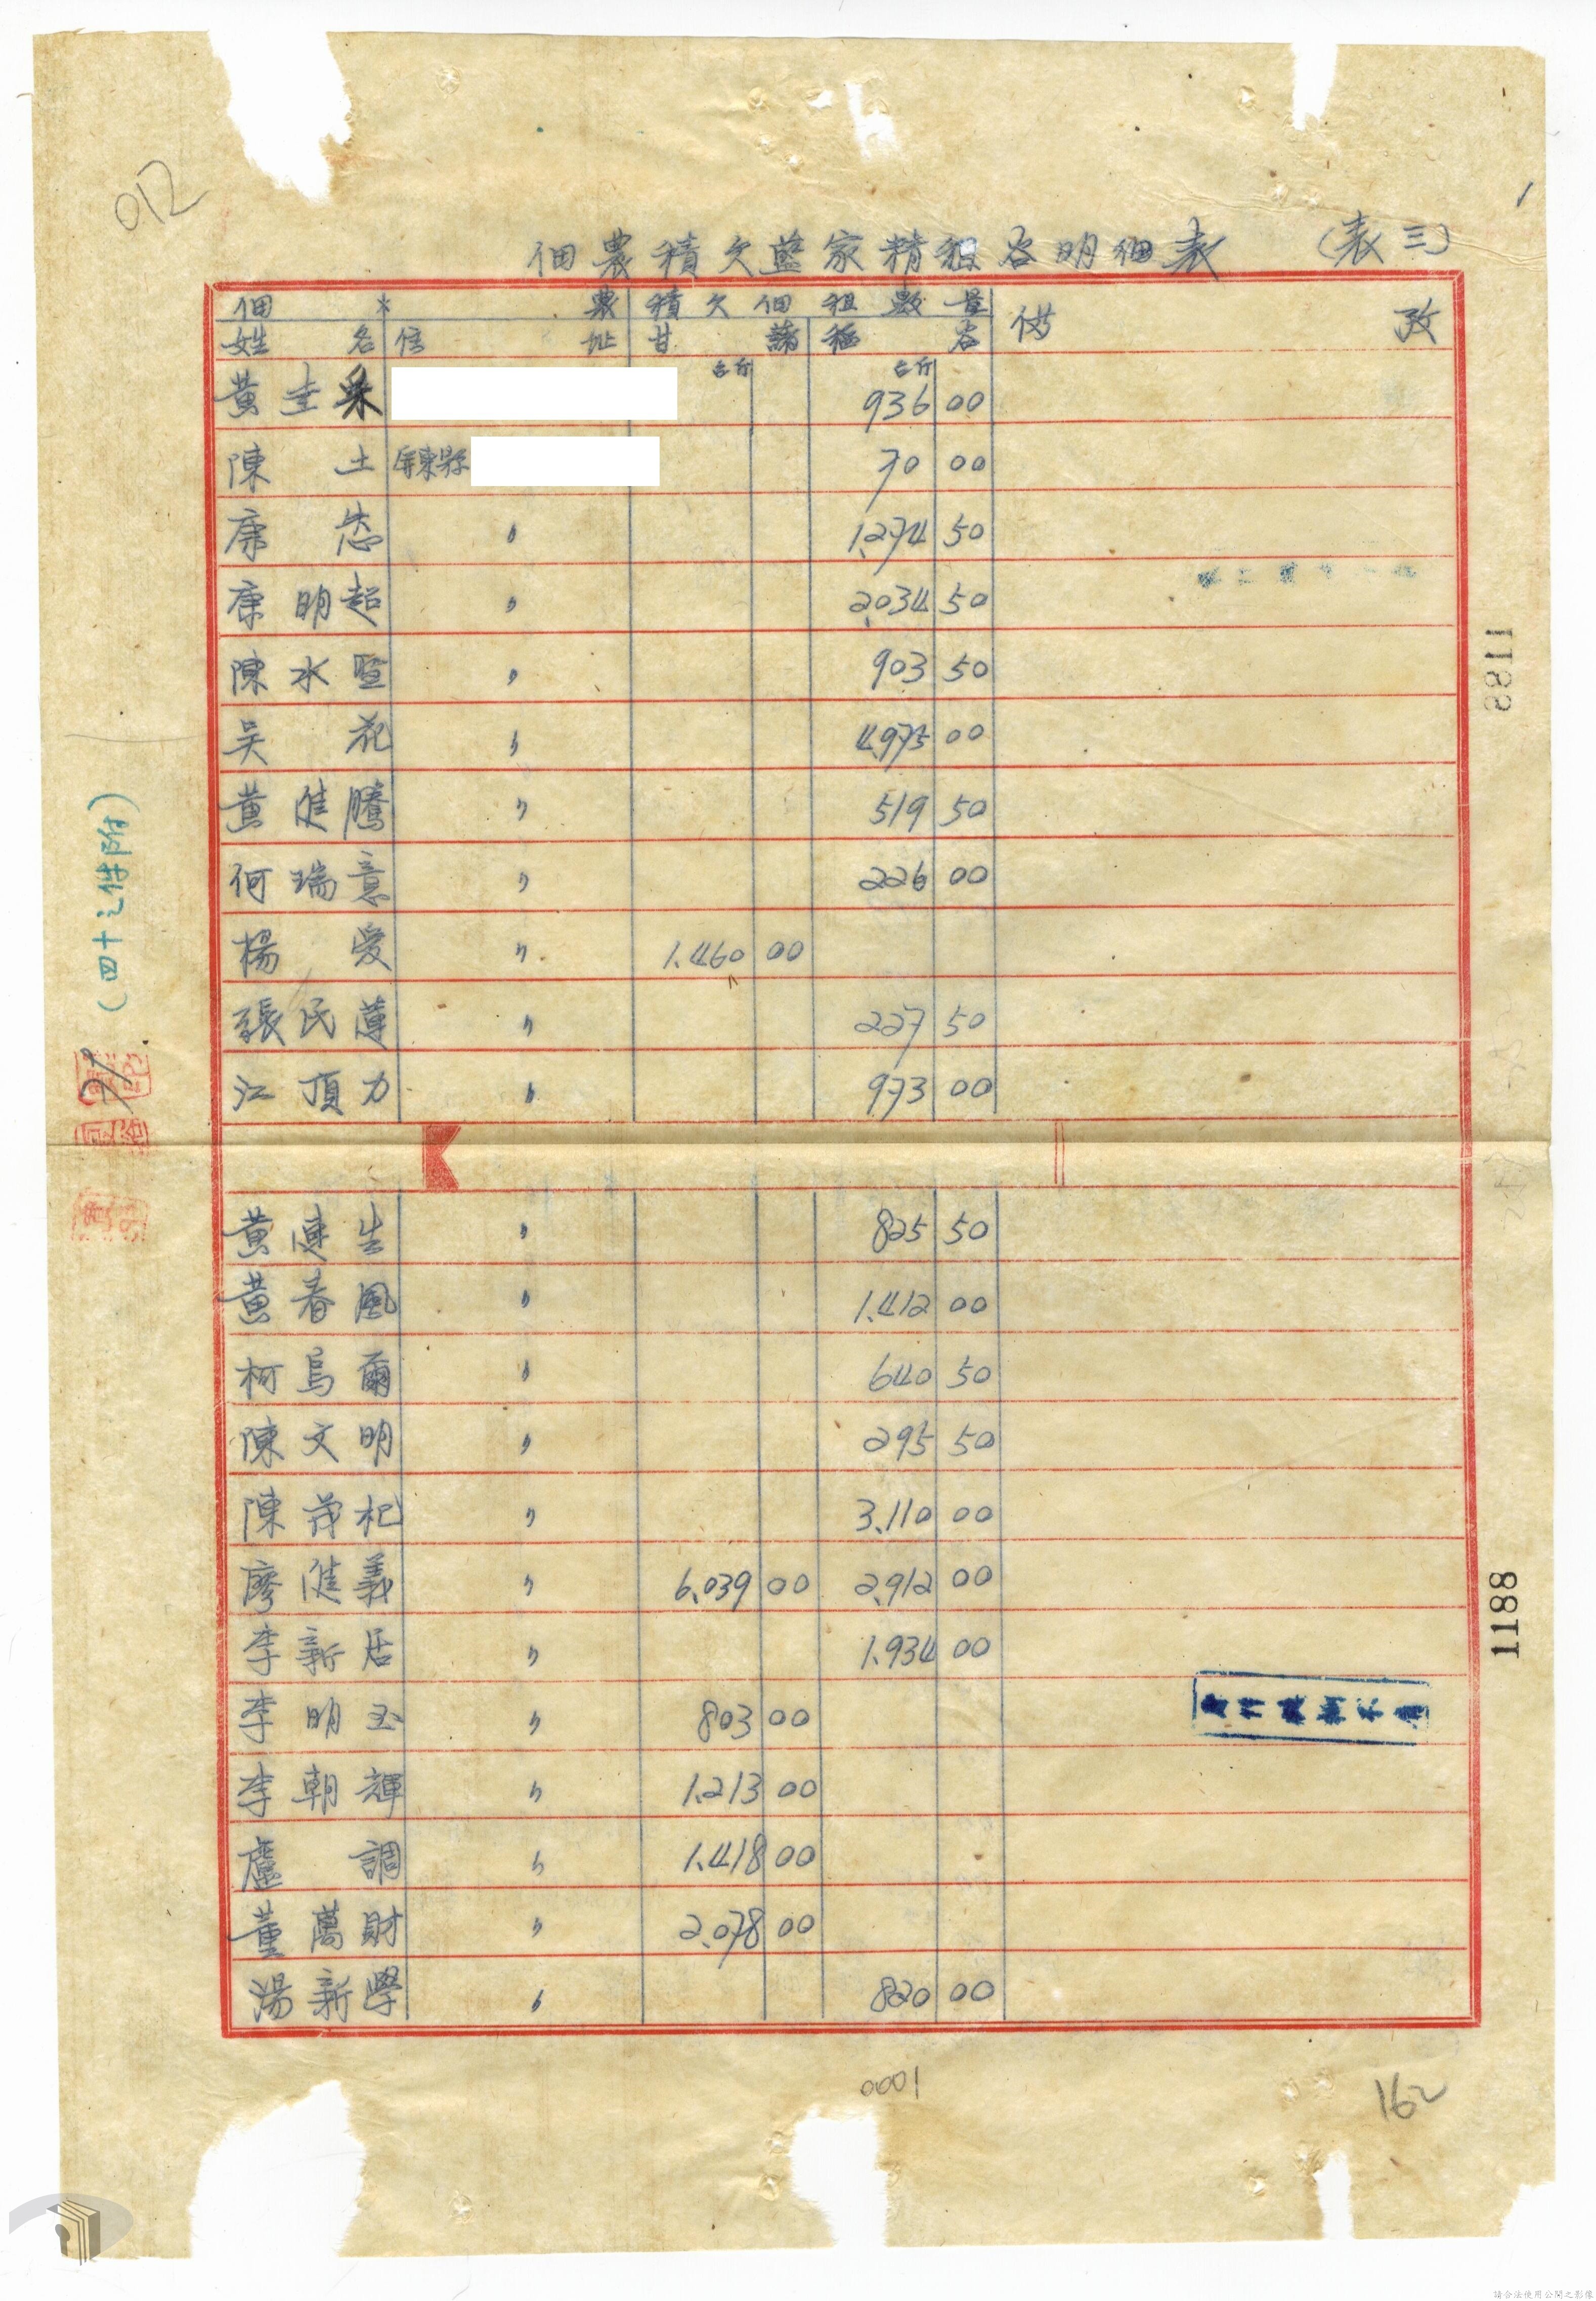 012
佃農積欠藍家精租谷明細表 (表三)
佃 農 積欠佃租數量 備 攷
姓名 住址 甘藷 稻谷
台斤 台斤
黃圭采 936 00
陳土 屏東縣 70 00
康 〃 1.274 50
康明超 〃 2.034 50
陳水 〃 903 50
吴花 〃 4.975 00
黃進騰 〃 519 50
何瑞意 〃 226 00
楊愛 〃 1.460 00
張民薄 〃 227 50
江頂力 〃 973 00
黃連生 〃 825 50
黃春風 〃 1.412 00
柯烏爾 〃 640 50
陳文明 〃 295 50
陳茂杞 〃 3.110 00
廖進義 〃 6.039 00 2.912 00
李新居 〃 1.934 00
李明玉 〃 803 00
李朝輝 〃 1.213 00
盧調 〃 1.418 00
董萬財 〃 2.078 00
湯新學 〃 820 00
(四十之件附)
1188
1188
0001
162
請合法使用公開之影像